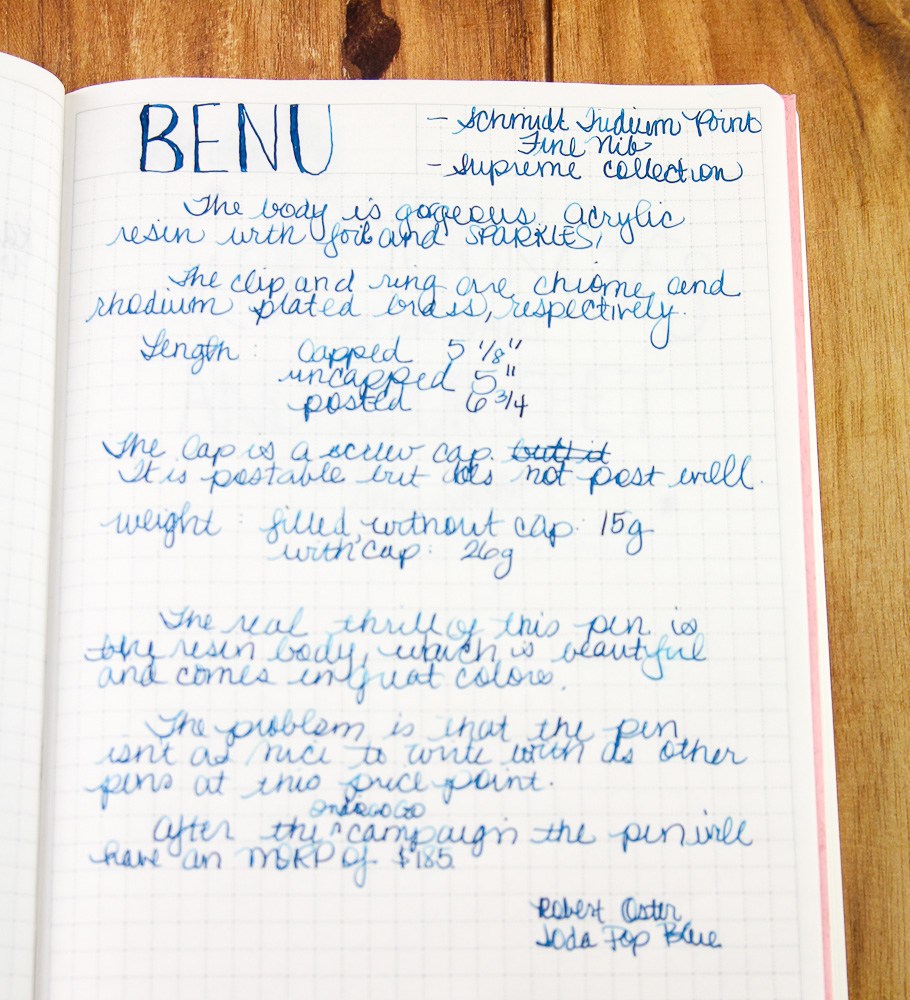 BENU
- Schmidt Iridium Point
Fine Nib
- Supreme collection
The body is gorgeous acrylic
resin with foil and SPARKLES!
The clip and ring are chrome and
rhodium plated brass, respectively.
Length: Capped 5 1/8"
uncapped 5"
posted 6 3/4
The Cap is a screw cap. but it
It is postable but does not post well.
weight: filled, without cap: 15g
with cap: 26g
The real thrill of this pen is
the resin body, which is beautiful
and comes in great colors.
The problem is that the pen
isn't as nice to write with as other
pens at this price point.
indiegogo
After the ^ campaign the pen will
have an MSRP of $185.
Robert Oster
Soda Pop Blue